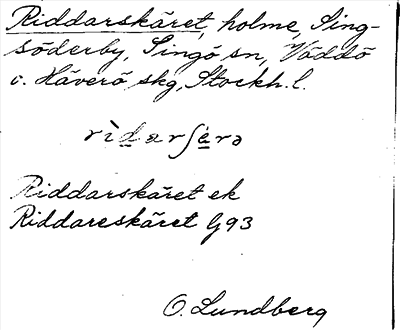 Riddarskäret, holme, Sing-
söderby, Singö sn, Väddö
o. Häverö skg, Stockh. l.
rìdarʃérə
Riddarskäret ek
Riddareskäret G93
O. Lundberg